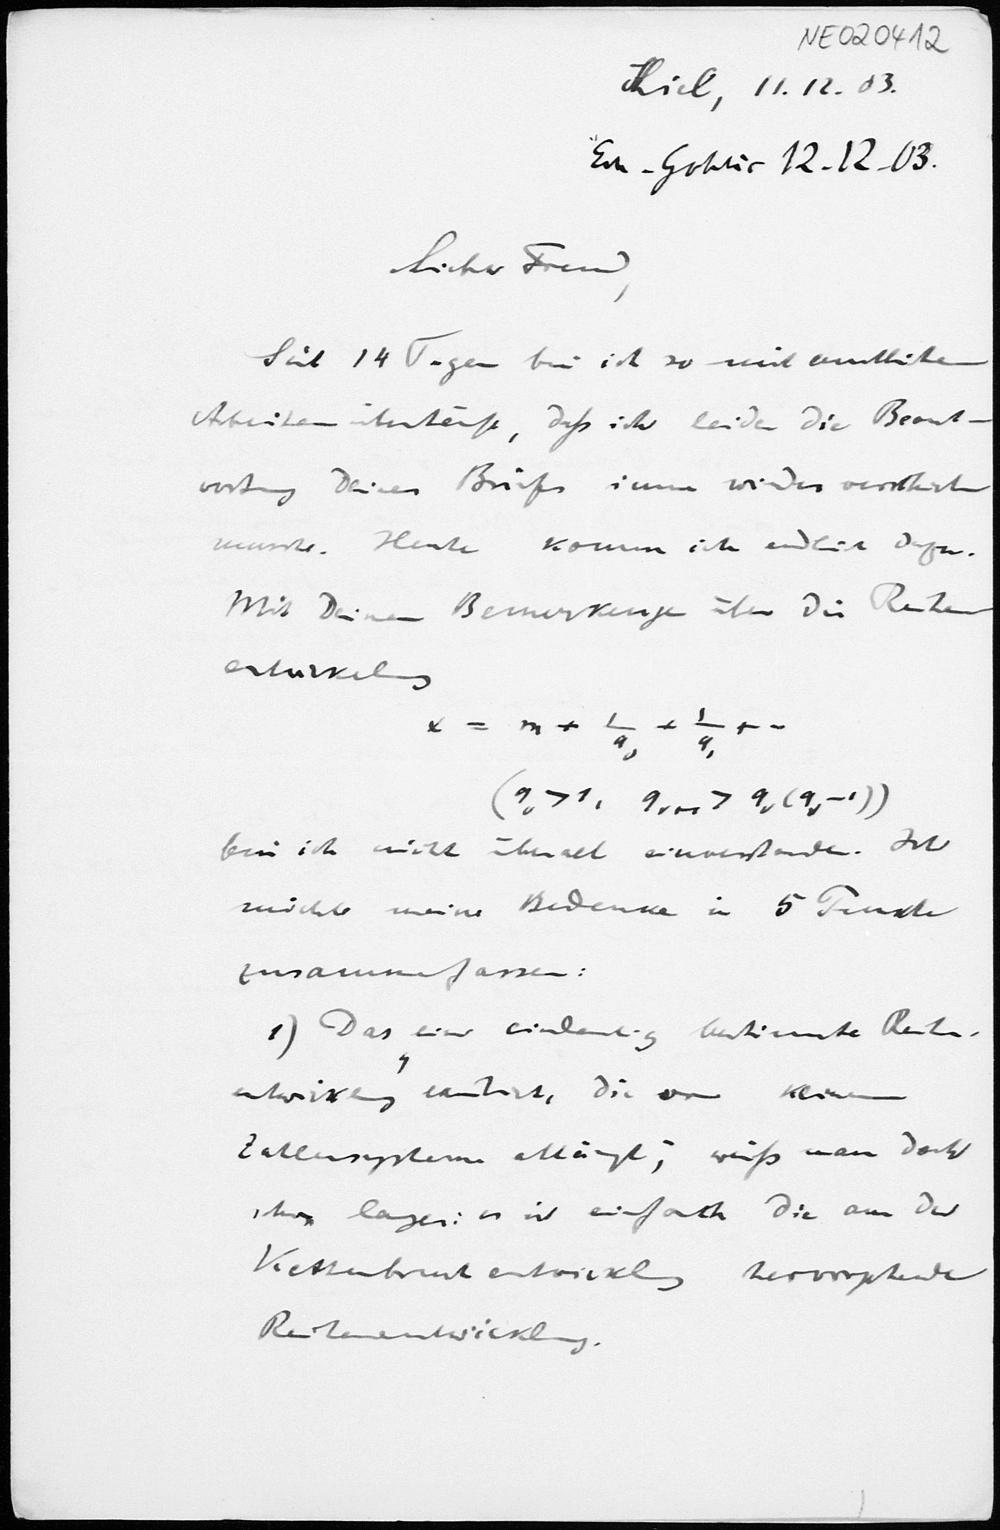 NE020412
Kiel, 11.12.03.
12-12-03.
Lieber Freund,
Seit 14 Tagen bin ich so mit amtlichen
Arbeiten überhäuft, daß ich leider die Beant-
wortung Deines Briefes immer wieder verschieben
musste. Heute komme ich endlich dazu.
Mit Deinen Bemerkungen über die Reihen
entwickelung
x = m + 1/q₀ + 1/q₁ + --
(qᵥ > 1, qᵥ₊₁ > qᵥ(qᵥ-1))
bin ich nicht überall einverstanden. Ich
möchte meine Bedenken in 5 Punkte
zusammenfassen:
1) Das eine eindeutig bestimmte Reihen-
entwicklung existirt, die von keinem
Zahlensysteme abhängt, weiß man doch
schon lange: es ist einfach die aus der
Kettenbruchentwicklung hervorgehende
Reihenentwicklung.